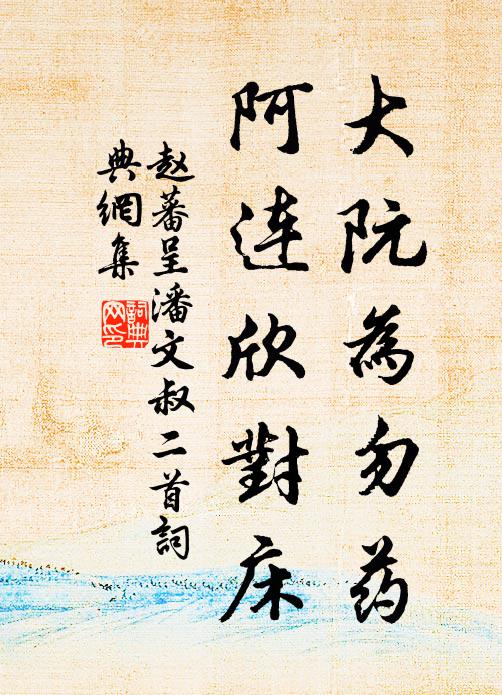 大阮為勿药
阿连欣對床
赵蕃呈潘文叔二首詞
典網集
詞典
网印